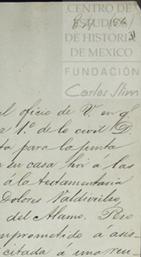 CENTRO DE
ESTUDIOS
DE HISTORIA
DE MÉXICO
FUNDACIÓN
Carlos Slim
el oficio de V. en q
1º de lo civil D.
ta para la junta
su casa hoi á las
á la testamentaria
Dolores Valdivieles
del Alamo. Pero
comprometido á asis
citada á una reu-